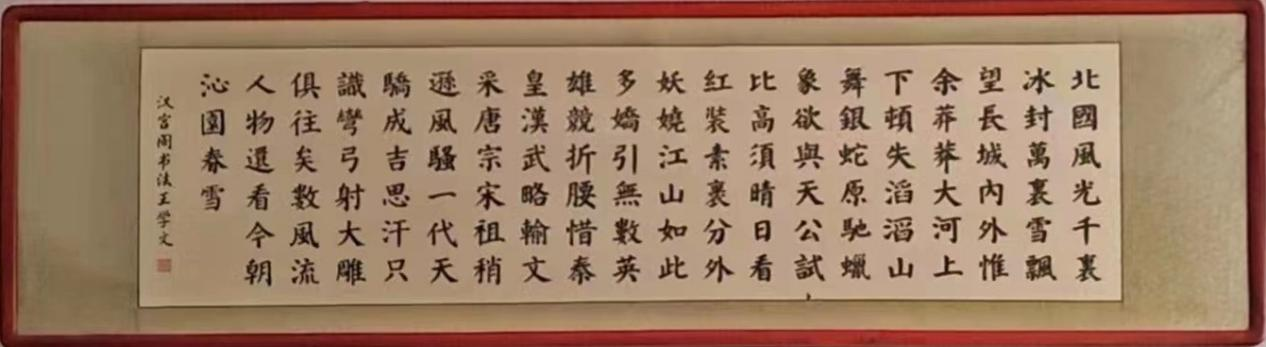 北國風光千裏
冰封萬裏雪飄
望長城內外惟
余莽莽大河上
下頓失滔滔山
舞銀蛇原馳蠟
象欲與天公試
比高須晴日看
紅裝素裹分外
妖嬈江山如此
多嬌引無數英
雄競折腰惜秦
皇漢武略輸文
采唐宗宋祖稍
遜風騷一代天
驕成吉思汗只
識彎弓射大雕
俱往矣數風流
人物還看今朝
沁園春雪
汉宫阁书法王学文